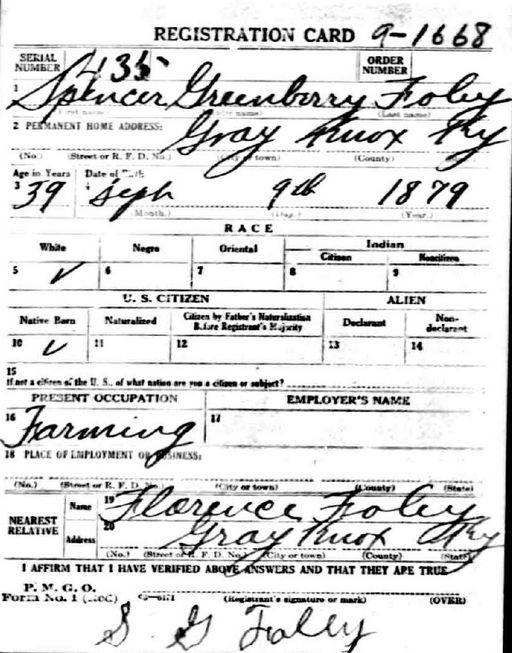 REGISTRATION CARD 9-1668
SERIAL NUMBER 435 ORDER NUMBER
1 Spencer Greenberry Foley
(First name) (Middle name) (Last name)
2 PERMANENT HOME ADDRESS: Gray Knox Ky
(No.) (Street or R. F. D. No.) (City or town) (County)
Age in Years Date of Birth
3 39 4 Sept 9th 1879
(Month.) (Day.) (Year.)
RACE
White Negro Oriental Indian
Citizen Noncitizen
5 ✓ 6 7 8 9
U. S. CITIZEN ALIEN
Native Born Naturalized Citizen by Father's Naturalization Before Registrant's Majority Declarant Non-declarant
10 ✓ 11 12 13 14
15
If not a citizen of the U. S., of what nation are you a citizen or subject?
PRESENT OCCUPATION EMPLOYER'S NAME
16 Farming 17
18 PLACE OF EMPLOYMENT OR BUSINESS:
(No.) (Street or R. F. D. No.) (City or town) (County) (State)
NEAREST RELATIVE Name 19 Florence Foley
Address 20 Gray Knox Ky
(No.) (Street or R. F. D. No.) (City or town) (County) (State)
I AFFIRM THAT I HAVE VERIFIED ABOVE ANSWERS AND THAT THEY ARE TRUE
P. M. G. O.
Form No. 1 (Red) (Registrant's signature or mark) (OVER)
S G Foley